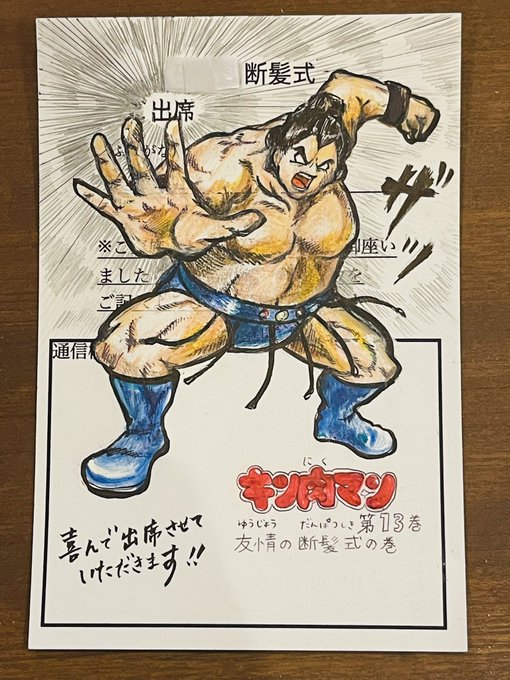 断髪式
出席
ふ がな
ザッ
※こ 御座い
ました を
ご記
通信
キン肉マン
にく
ゆうじょう だんぱつしき 第13巻
友情の断髪式の巻
喜んで出席させて
いただきます!!